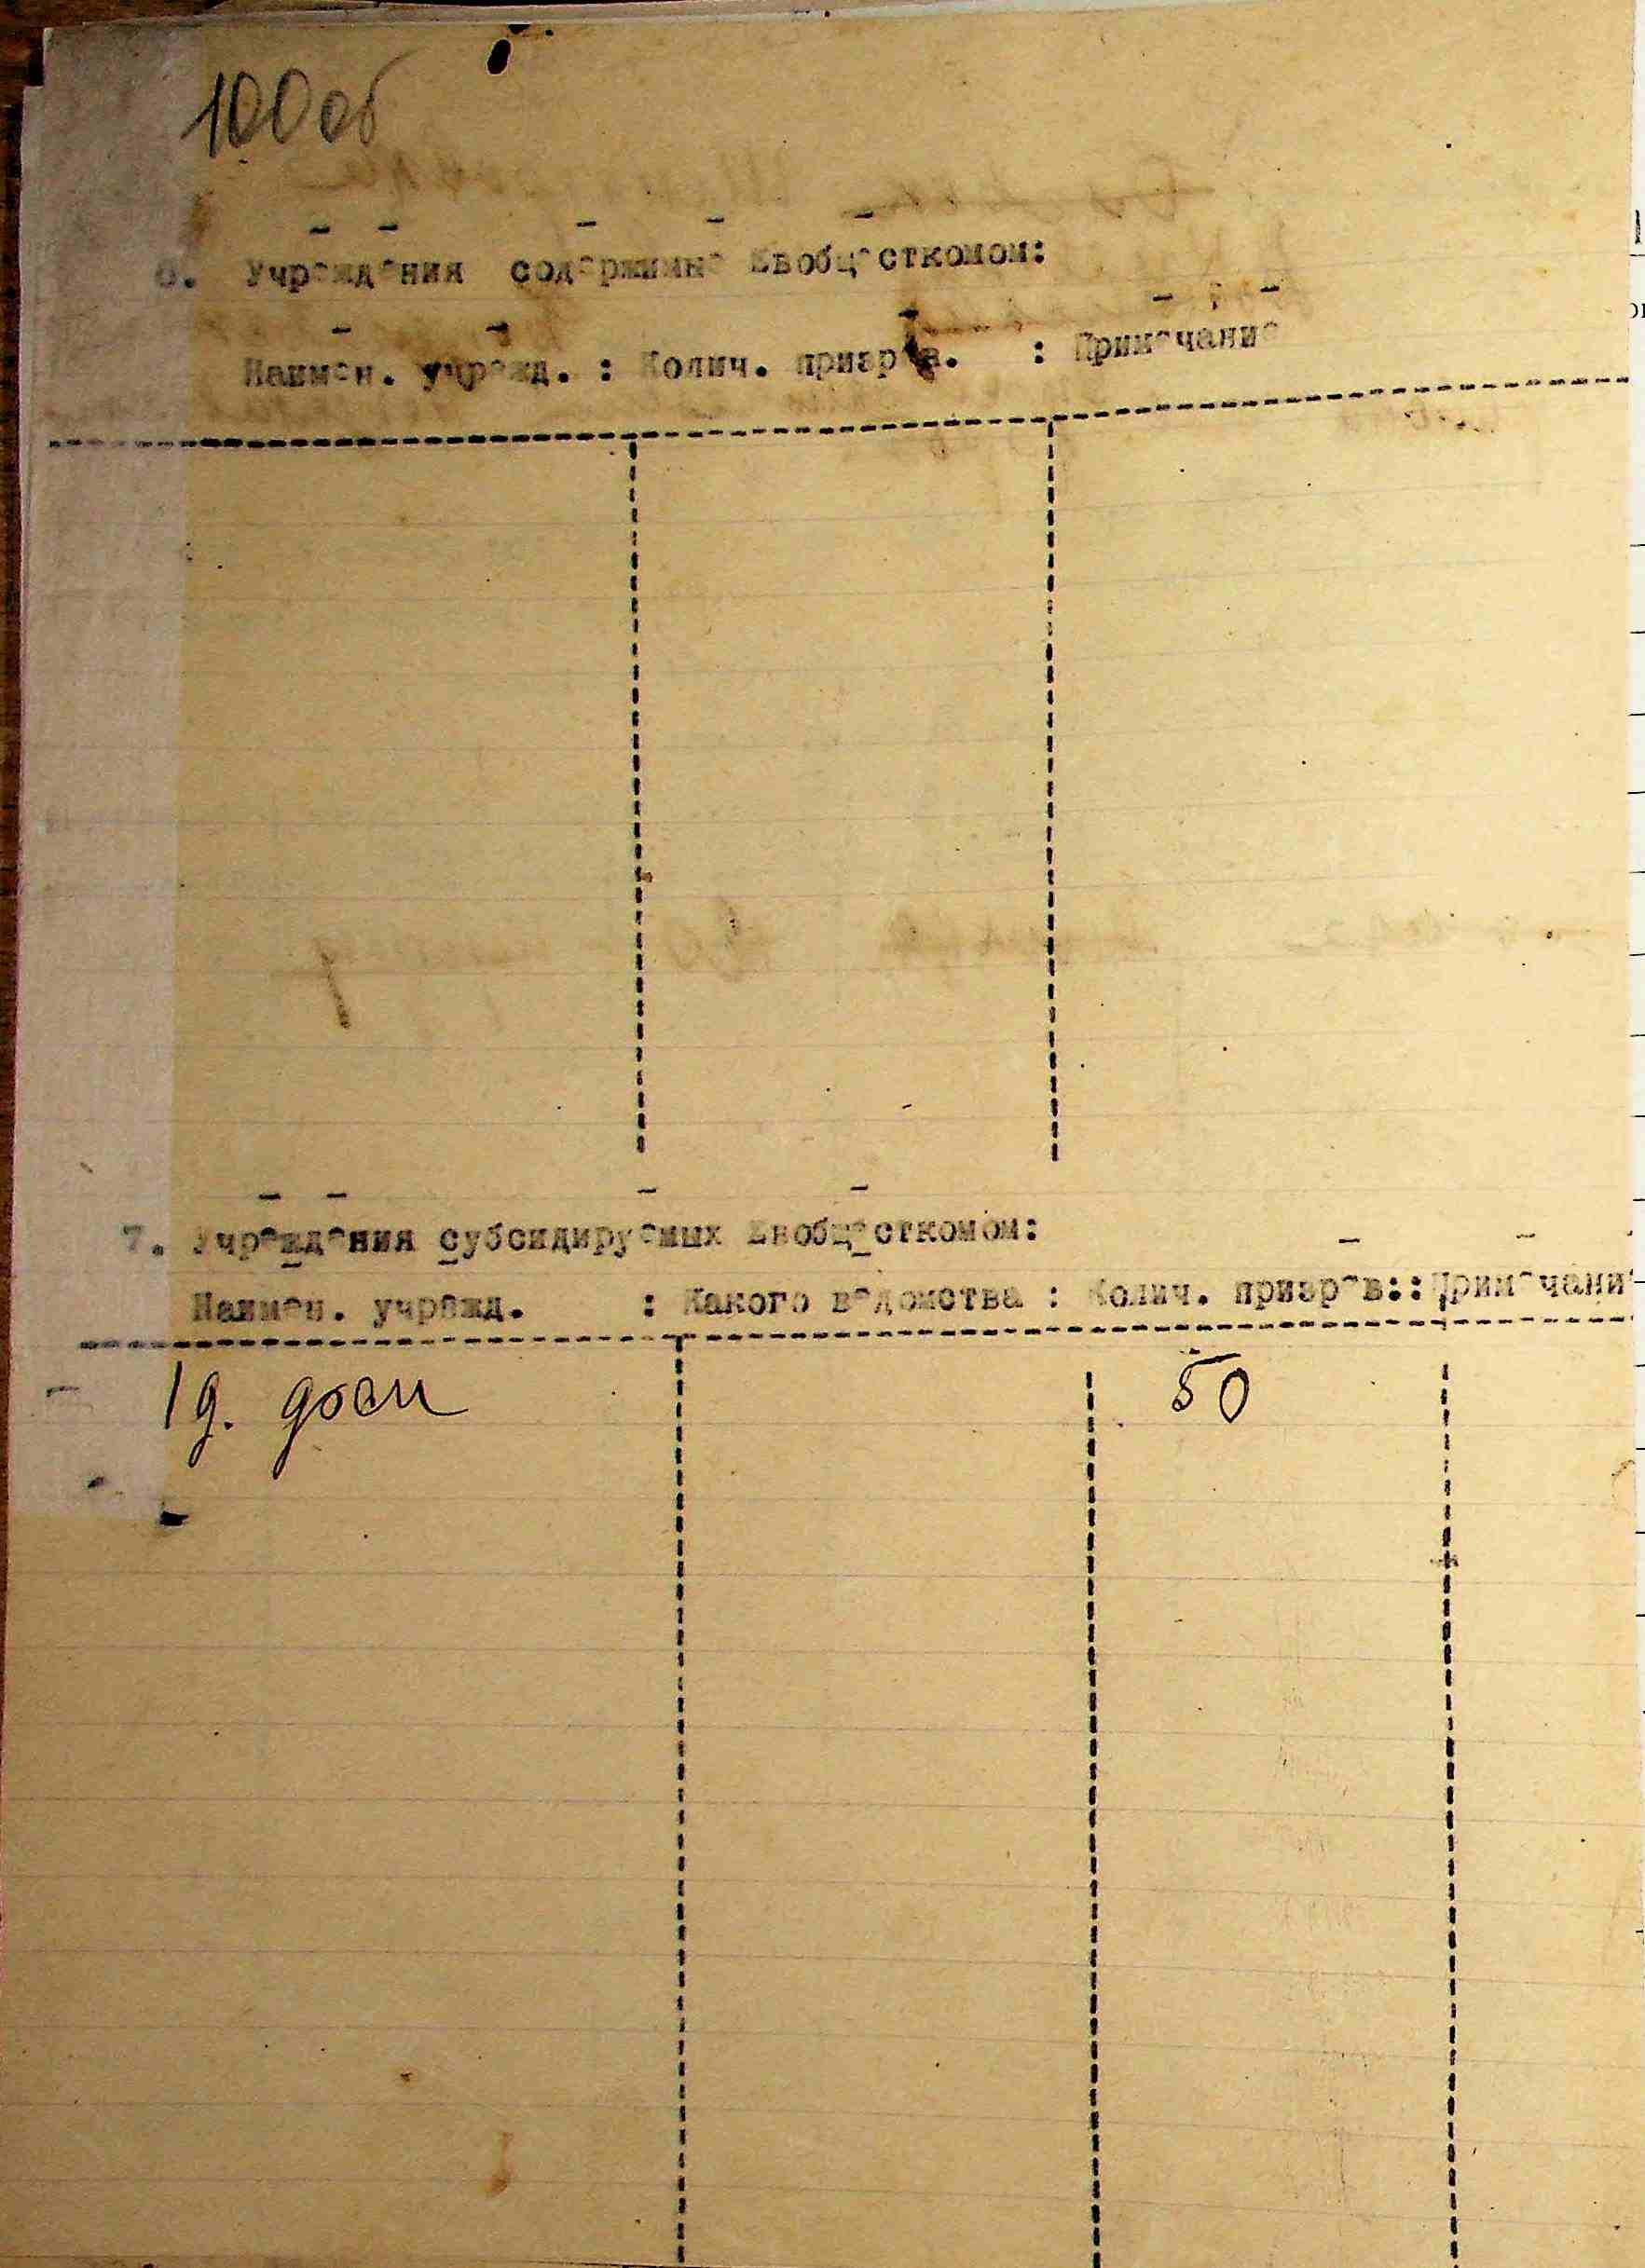 100 об
6. Учреждения содержимые Евобщесткомом:
Наимен. учрежд. : Колич. призрев. : Примечание
7. Учреждения субсидируемых Евобщесткомом:
Наимен. учрежд. : Какого ведомства : Колич. призрев:: Примечани
1 д. дом 50